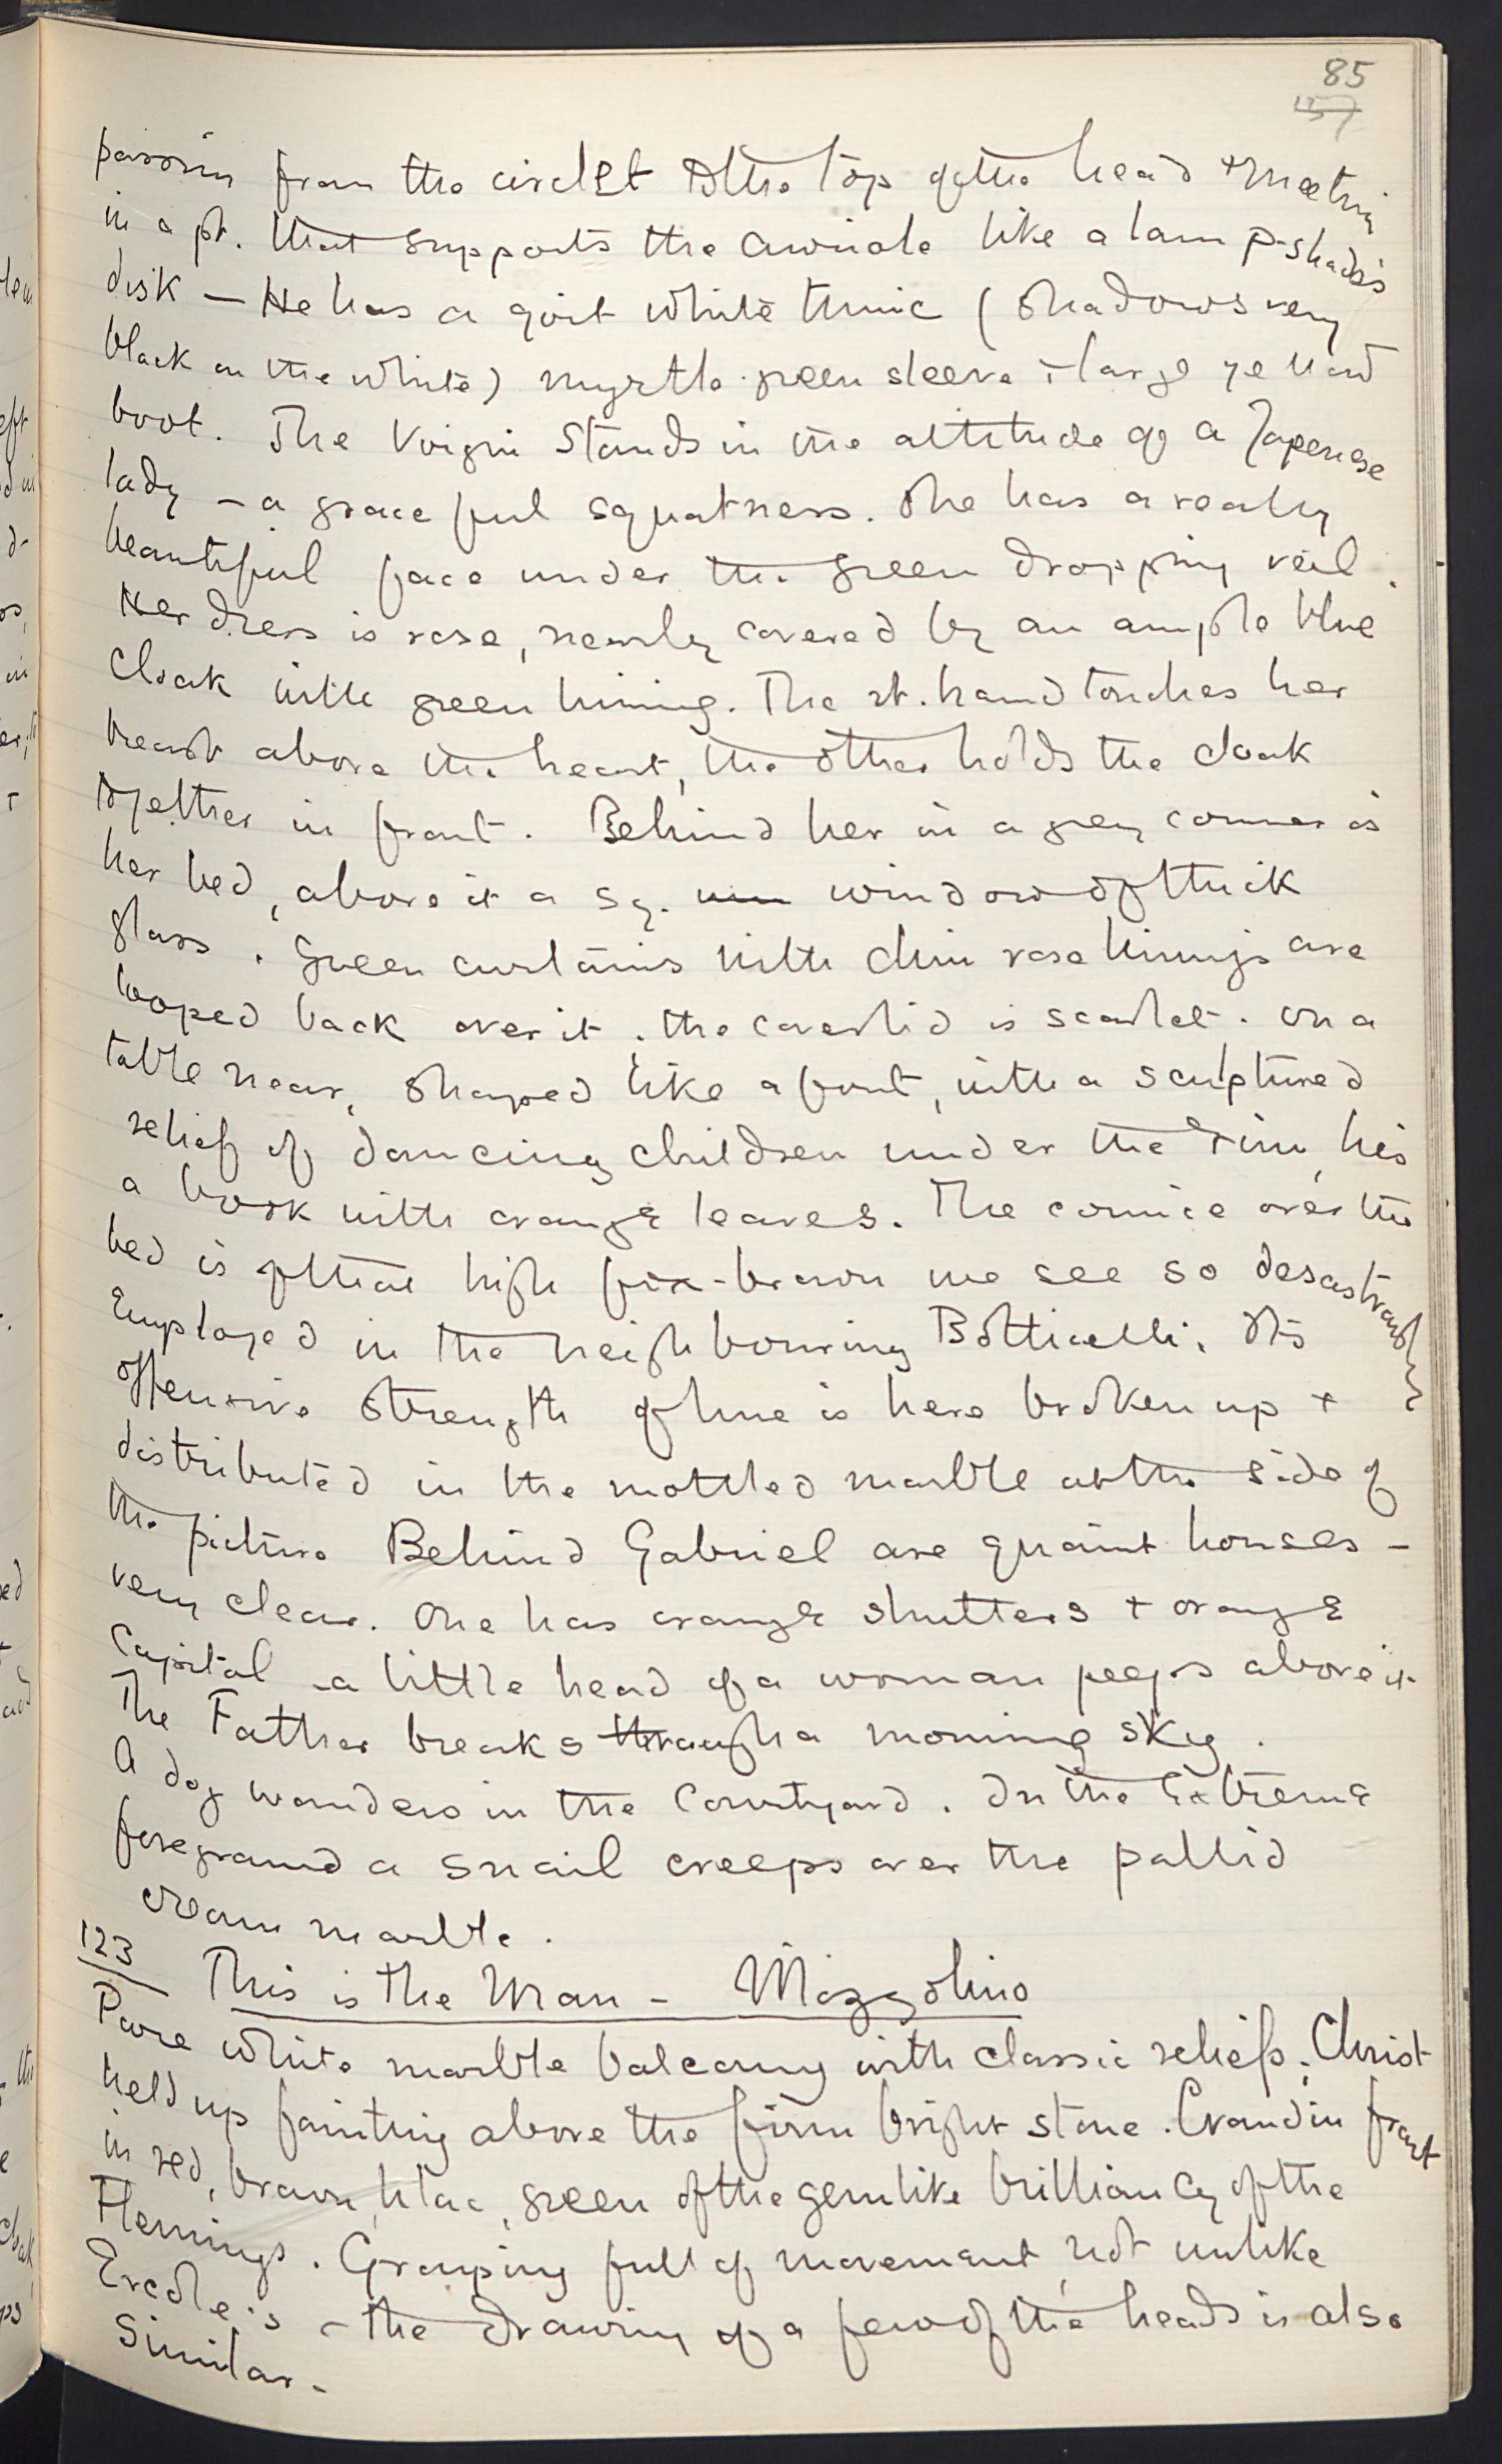 85
157
passing from the circlet to the top of the head & meeting
in a pt. that supports the aureole like a lamp-shade's
disk – He has a girt white tunic (shadows very
black on the white) myrtle-green sleeve & large yellow
boot. The Virgin stands in the attitude of a Japenese
lady – a graceful squatness. She has a really
beautiful face under the green dropping veil.
Her dress is rose, nearly covered by an ample blue
cloak with green lining. The rt. hand touches her
breast above the heart, the other holds the cloak
together in front. Behind her in a grey corner is
her bed, above it a sq. window of thick
glass. Green curtains with dim rose linings are
looped back over it. the coverlid is scarlet. On a
table near, shaped like a font, with a sculptured
relief of dancing children under the rim, lies
a book with orange leaves. The cornice over the
bed is of that high fox-brown we see so desastrously
employed in the neighbouring Botticelli. Its
offensive strength of hue is here broken up &
distributed in the mottled marble at the side of
the picture Behind Gabriel are quaint houses –
very clear. One has orange shutters & orange
capital – a little head of a woman peeps above it
The Father breaks through a morning sky.
A dog wanders in the Courtyard. In the extreme
foreground a snail creeps over the pallid
cream marble.
123
This is the Man – Mazzolino
Pure white marble balcony with classic reliefs. Christ
held up fainting above the firm bright stone. Crowd in front
in red, brown, lilac, green of the gemlike brilliancy of the
Flemings. Grouping full of movement, not unlike
Ercole's – the drawing of a few of the heads is also
similar.